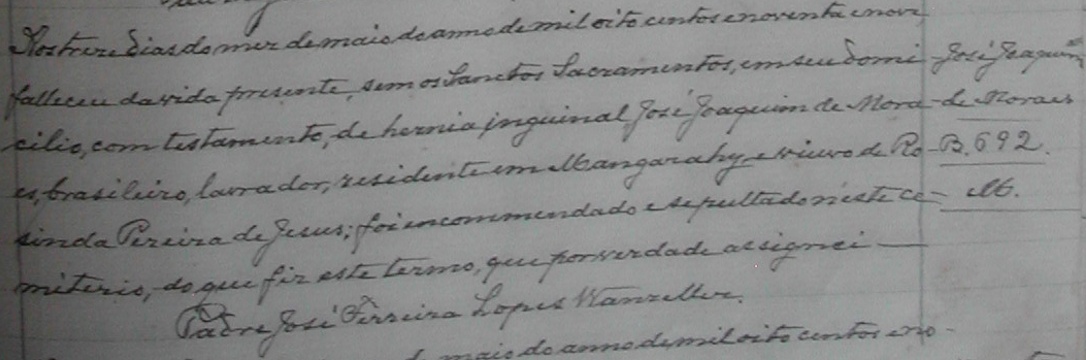 Aos treze dias do mez de maio do anno de mil oito centos e noventa e nove,
falleceu da vida presente, sem os Sanctos Sacramentos, em seu domi-
cilio, com testamento, de hernia inguinal José Joaquim de Mora-
es, brasileiro, lavrador, residente em Mangarahy e viuvo de Ro-
sinda Pereira de Jesus; foi encommendado e sepultado n'este ce-
miterio, do que fiz este termo, que por verdade assignei —
Padre José Ferreira Lopes Wanzeller.
maio do anno de mil oito centos e no-
José Joaquim
de Moraes
B. 692.
M.